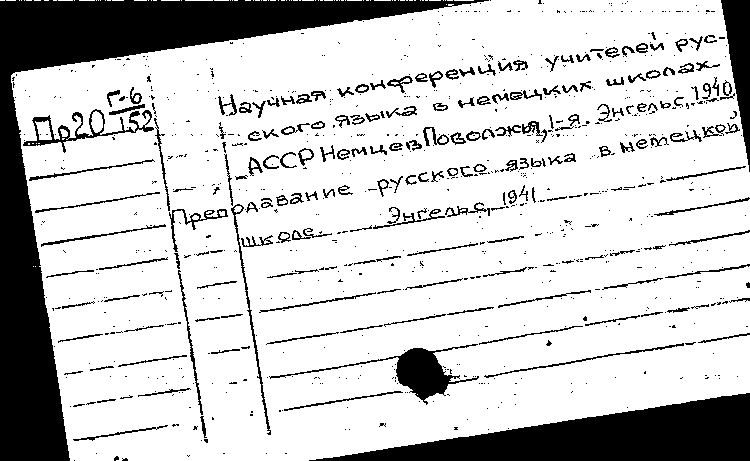 Пр20 Г-6/152
Научная конференция учителей рус-
ского языка в немецких школах
АССР Немцев Поволжья, 1-я. Энгельс, 1940
Преподавание русского языка в немецкой
школе. Энгельс, 1941